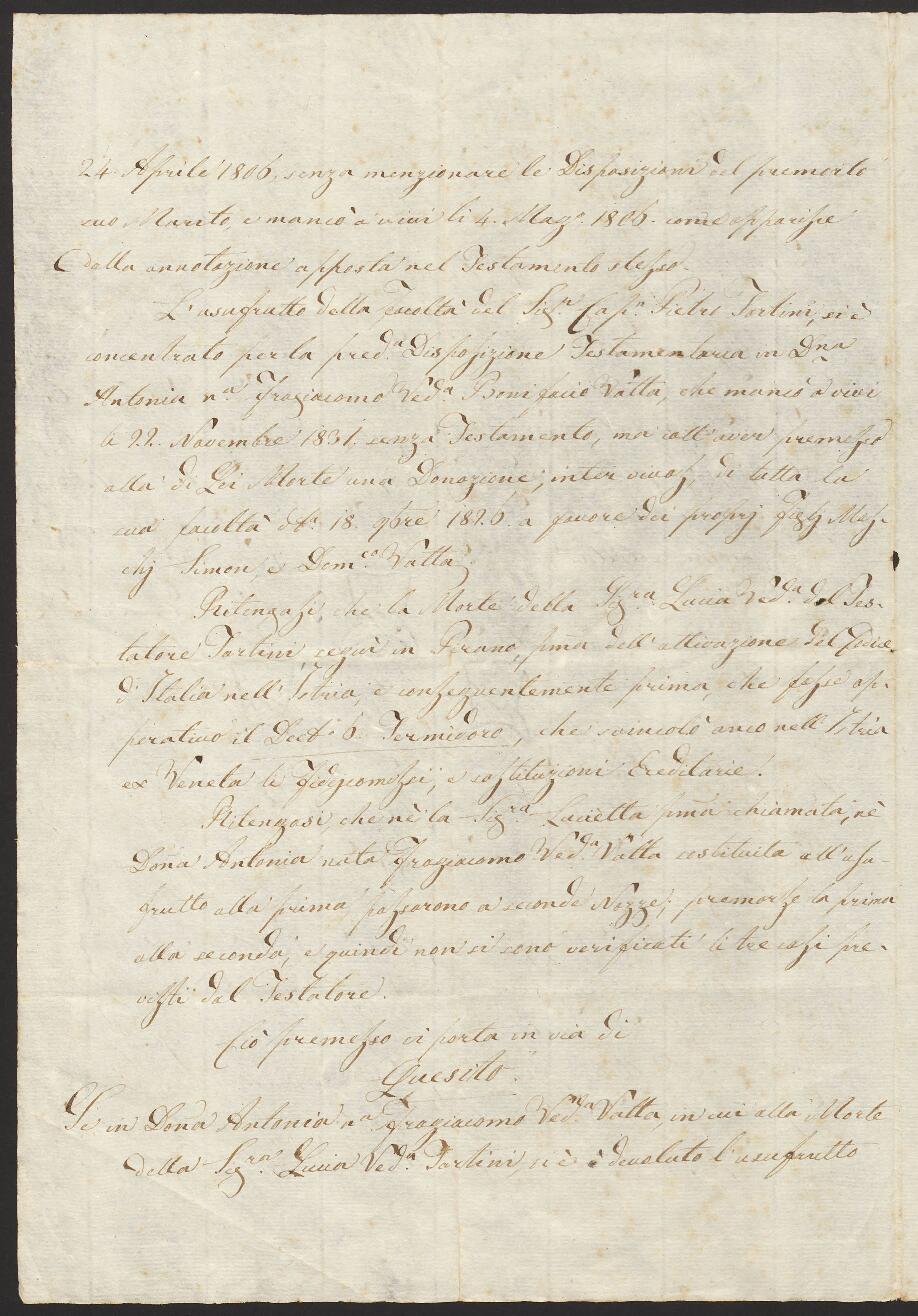 24. Aprile 1806. senza menzionare le Disposizioni del premorto
suo Marito, e mancò a vivi li 4. Mag.º 1806. come apparisse
dalla annotazione apposta nel Testamento stesso.
L'usufrutto della facoltà del Sig.r Cap.n Pietro Tartini, si è
concentrato per la pred.a Disposizione Testamentaria in Dna
Antonia n.a Fragiacomo Ved.a Bonifacio Vatta, che mancò a vivi
li 22. Novembre 1831. senza Testamento, ma coll'aver premesso
alla di Lei Morte una Donazione, inter vivos, di tutta la
sua facoltà dt.a 18. qbre 1826. a favore dei proprj Figlj Mas-
chj Simon, e Dom.co Vatta.
Ritengasi, che la Morte della Sig.ra Lucia Ved.a del Tes-
tatore Tartini, seguì in Pirano, pma dell'attivazione del Codice
d'Italia nell'Istria, e conseguentemente prima, che fosse op-
perativo il Dect.º 6. Termidoro, che svincolò anco nell'Istria
ex Veneta li Fidecomessi, e sostituzioni Ereditarie.
Ritengasi, che nè la Sig.ra Lucietta pma chiamata, nè
Dona Antonia nata Fragiacomo Ved.a Vatta costituita all'usu-
frutto alla prima, passarono a seconde Nozze; premorse la prima
alla seconda, e quindi non si sono verificati li tre casi pre-
visti dal Testatore.
Ciò premesso si porta in via di
Quesito.
Se in Dona Antonia n.a Fragiacomo Ved.a Vatta, in cui alla Morte
della Sig.ra Lucia Ved.a Tartini, si è devoluto l'usufrutto